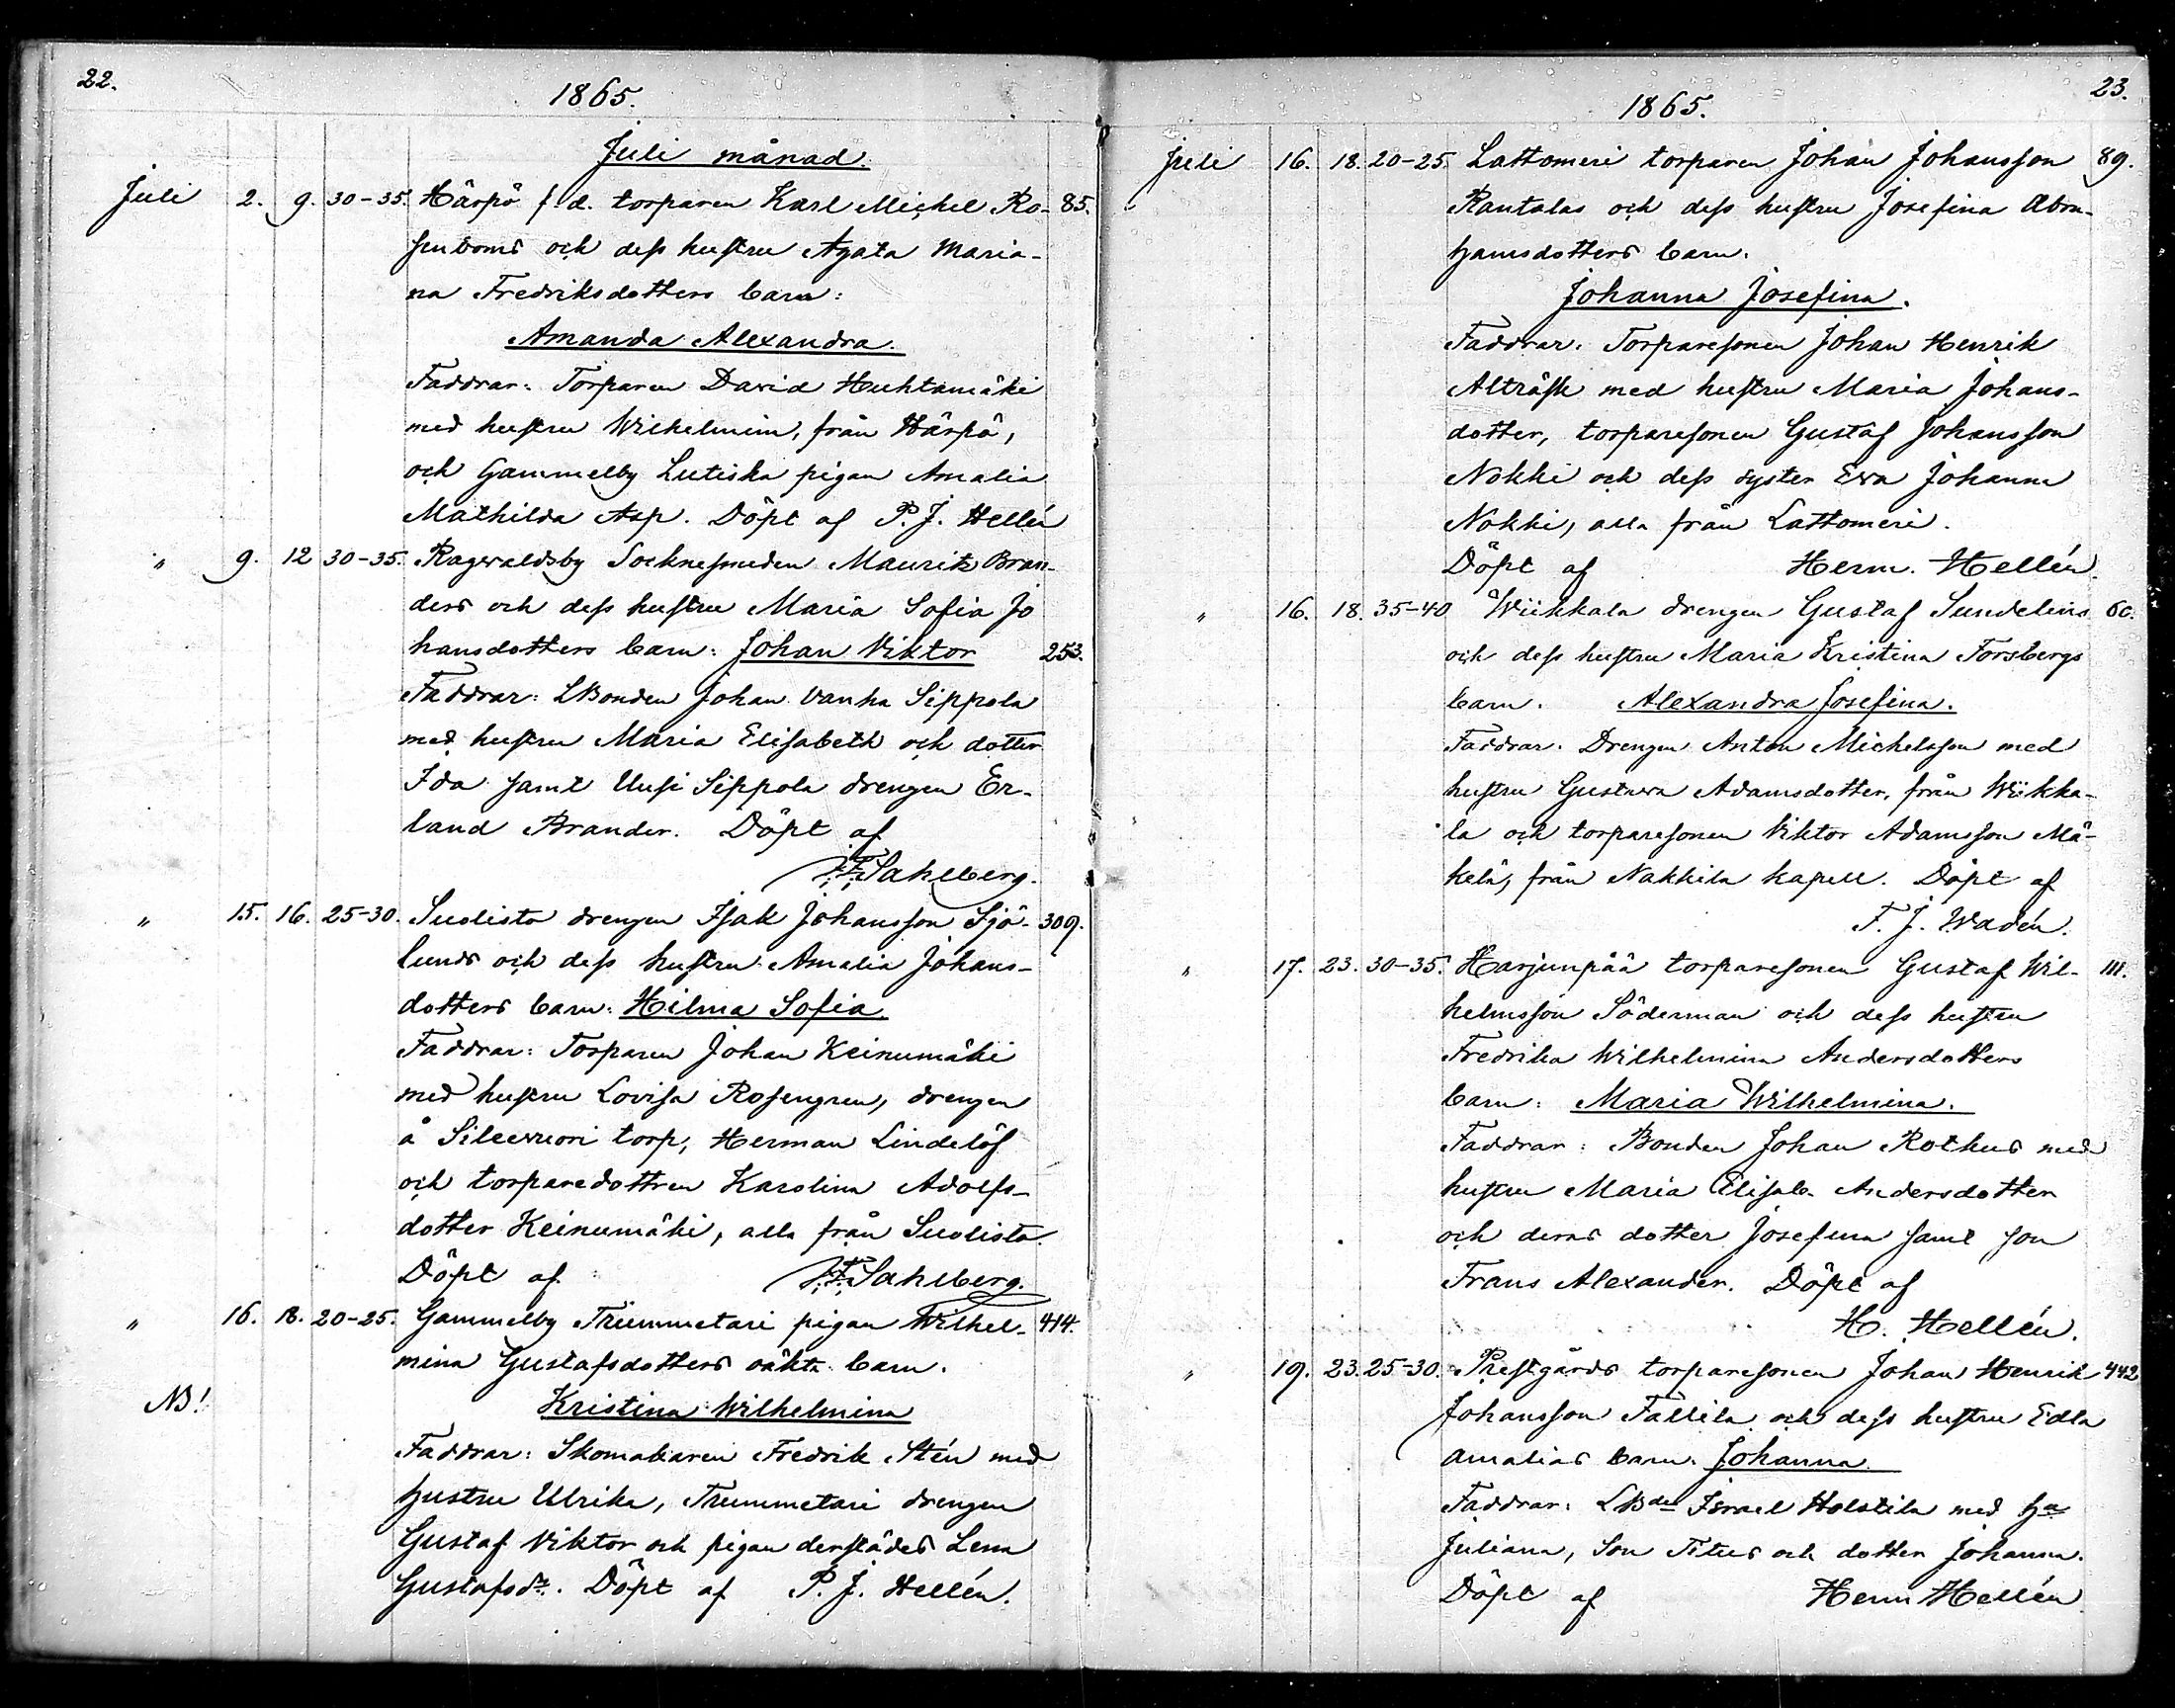 22.
1865.
Juli månad.
Juli 2. 9. 30-35. Härpö f. d. torparen Karl Michel Ro- 85.
senboms och dess hustru Agata Maria-
na Fredriksdotters barn:
Amanda Alexandra.
Faddrar: Torparen David Huhtamäki
med hustru Wilhelmina, från Härpö,
och Gammelby Lutiska pigan Amalia
Mathilda Asp. Döpt af P. J. Hellén
" 9. 12 30-35. Ragvaldsby Socknesmeden Maurits Bran-
ders och dess hustru Maria Sofia Jo
hansdotters barn: Johan Viktor 253.
Faddrar: LBonden Johan Vanha Sippola
med hustru Maria Elisabeth och dotter
Ida samt Uusi Sippola drengen Er-
land Brander. Döpt af
Sahlberg.
" 15. 16. 25-30. Suolisto drengen Isak Johansson Sjö- 309.
lunds och dess hustru Amalia Johans-
dotters barn: Hilma Sofia.
Faddrar: Torparen Johan Keinumäki
med hustru Lovisa Rosengren, drengen
å torp, Herman Lindelöf
och torparedottren Karolina Adolfs-
dotter Keinumäki, alla från Suolisto.
Döpt af Sahlberg.
" 16. 18. 20-25. Gammelby Trummetari pigan Wilhel- 414.
mina Gustafsdotters oäkta barn.
NB! Kristina Wilhelmina
Faddrar: Skomakaren Fredrik Stén med
hustru Ulrika, Trummetari drengen
Gustaf Viktor och pigan derstädes Lena
Gustafsdr. Döpt af P. J. Hellén.
23.
1865.
Juli 16. 18. 20-25. Lattomeri torparen Johan Johansson 89.
Rantalas och dess hustru Josefina Abra-
hamsdotters barn.
Johanna Josefina.
Faddrar: Torparesonen Johan Henrik
Alträsk med hustru Maria Johans-
dotter, torparesonen Gustaf Johansson
Nokki och dess syster Eva Johanna
Nokki, alla från Lattomeri.
Döpt af Herm. Hellén.
" 16. 18. 35-40 Wiikkala drengen Gustaf Sundelins 60.
och dess hustru Maria Kristina Forsbergs
barn. Alexandra Josefina.
Faddrar: Drengen Anton Michelsson med
hustru Gustava Adamsdotter, från Wiikka-
la och torparesonen Viktor Adamsson Mä-
kelä, från Nakkila kapell. Döpt af
F. J. Wadén.
" 17. 23. 30-35. Harjunpää torparesonen Gustaf Wil- 111.
helmsson Söderman och dess hustru
Fredrika Wilhelmina Andersdotters
barn: Maria Wilhelmina.
Faddrar: Bonden Johan Rothus med
hustru Maria Elisab. Andersdotter
och deras dotter Josefina samt son
Frans Alexander. Döpt af
H. Hellén.
" 19. 23. 25-30. Prestgårds torparesonen Johan Henrik 442
Johansson Tallila och dess hustru Edla
Amalias barn: Johanna.
Faddrar: LBden Israel Holstila med ha
Juliana, son Titus och dotter Johanna.
Döpt af Herm Hellén